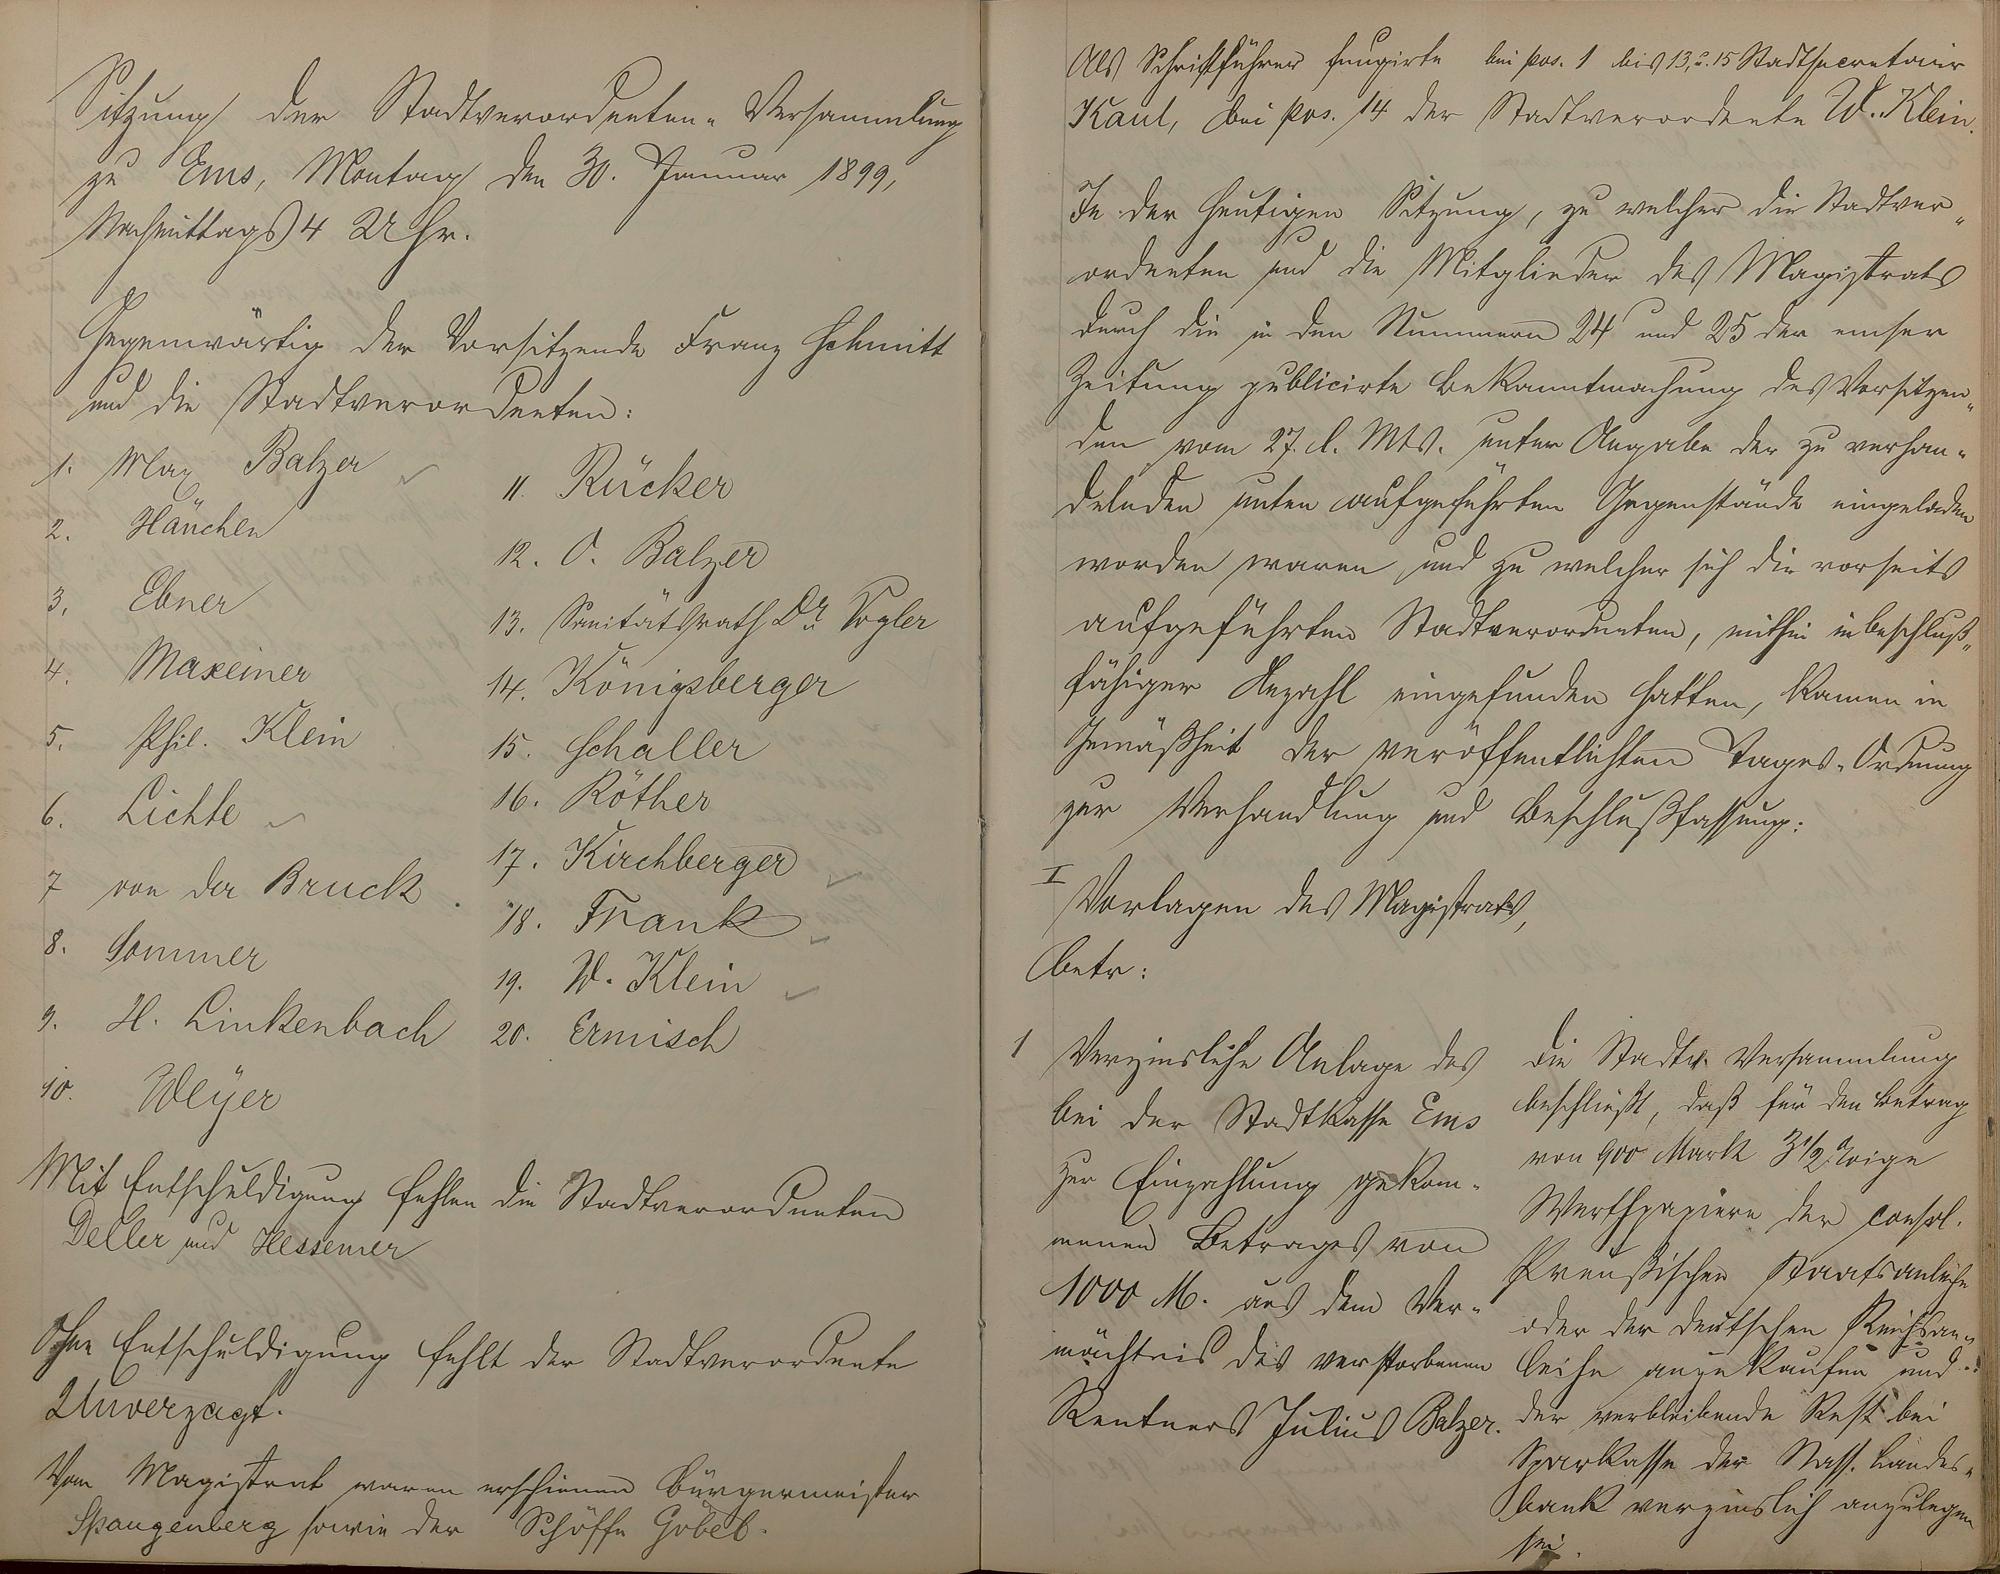 Sitzung der Stadtverordneten-Versammlung
zu Ems, Montag den 30. Januar 1899,
Nachmittags 4 Uhr.
Gegenwärtig der Vorsitzende Franz Schmitt
und die Stadtverordneten:
1. Max Balzer
2. Hänchen
3. Ebner
4. Maxeiner
5. Phil. Klein
6. Lichte
7 von der Bruck
8. Sommer
9. H. Linkenbach
10. Weyer
11. Rücker
12. O. Balzer
13. Sanitätsrath Dr. Vogler
14. Königsberger
15. Schaller
16. Röther
17. Kirchberger
18. Frank
19. W. Klein
20. Ermisch
Mit Entschuldigung fehlen die Stadtverordneten
Deller und Hessemer
Ohne Entschuldigung fehlt der Stadtverordnete
Unverzagt.
Vom Magistrat waren erschienen Bürgermeister
Spangenberg sowie der Schöffe Göbel.
Als Schriftführer fungirte bei pos. 1 bis 13, u. 15 Stadtsecretair
Kaul, bei pos. 14 der Stadtverordnete W. Klein.
In der heutigen Sitzung, zu welcher die Stadtver-
ordneten und die Mitglieder des Magistrats
durch die in den Nummern 24 und 25 der emser
Zeitung publicirte Bekanntmachung des Vorsitzen-
den vom 27. d. Mts. unter Angabe der zu verhan-
delnden unten aufgeführten Gegenstände eingeladen
worden waren und zu welcher sich die vorseits
aufgeführten Stadtverordneten, mithin in beschluß-
fähiger Anzahl eingefunden hatten, kamen in
Gemäßheit der veröffentlichten Tages-Ordnung
zur Verhandlung und Beschlußfassung:
I
Vorlagen des Magistrats,
betr:
1 Verzinsliche Anlage des
bei der Stadtkasse Ems
zur Einzahlung gekom-
menen Betrages von
1000 M. aus dem Ver-
mächtnis des verstorbenen
Rentners Julius Balzer.
Die Stadtv. Versammlung
beschließt, daß für den Betrag
von 900 Mark 3 1/2 %ige
Werthpapiere der consol.
Preußischen Staatsanleihe
oder der deutschen Reichsan-
leihe anzukaufen und
der verbleibende Rest bei
Sparkasse der Nass. Landes-
bank verzinslich anzulegen
sei.